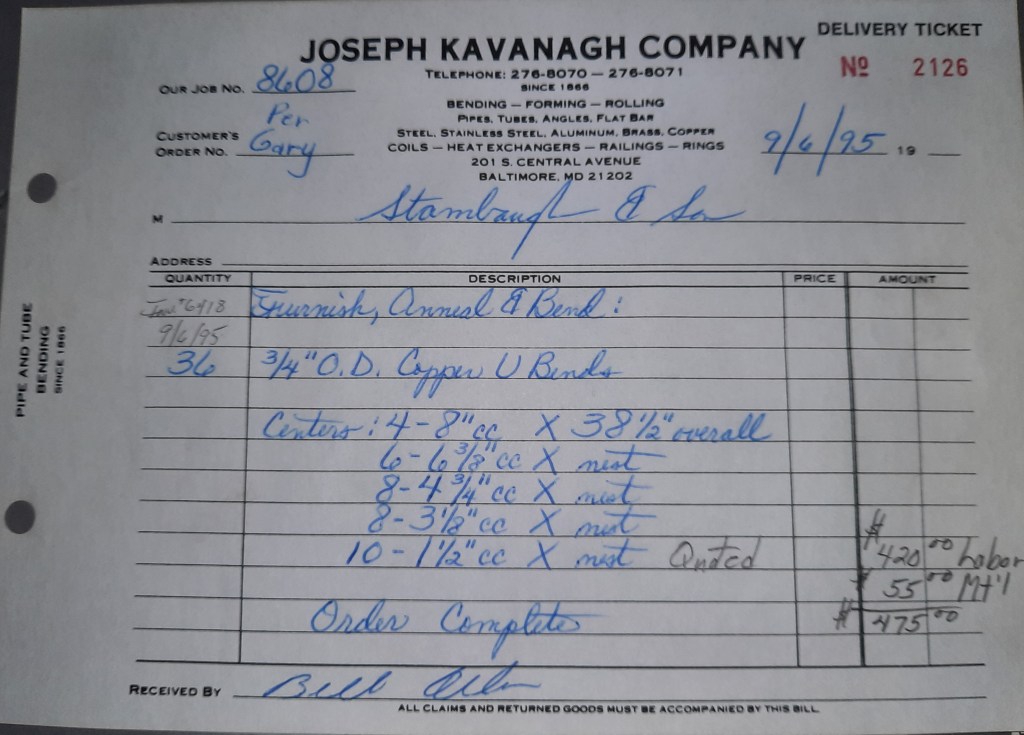 DELIVERY TICKET
JOSEPH KAVANAGH COMPANY
Nº 2126
TELEPHONE: 276-8070 — 276-8071
SINCE 1866
OUR JOB NO. 8608
BENDING — FORMING — ROLLING
PIPES, TUBES, ANGLES, FLAT BAR
STEEL, STAINLESS STEEL, ALUMINUM, BRASS, COPPER
COILS — HEAT EXCHANGERS — RAILINGS — RINGS
201 S. CENTRAL AVENUE
BALTIMORE, MD 21202
Per
CUSTOMER'S
ORDER NO. Gary
9/6/95 19
M Stambaugh & Son
ADDRESS
QUANTITY DESCRIPTION PRICE AMOUNT
Inv. #6418 Furnish, Anneal & Bend:
9/6/95
36 3/4" O.D. Copper U Bends
Centers: 4-8"cc X 38 1/2" overall
6-6 3/8"cc X nest
8-4 3/4"cc X nest
8-3 1/8"cc X nest
10-1 1/2"cc X nest Quoted $420.00 Labor
$55.00 Mt'l
Order Complete $475.00
RECEIVED BY Bill
ALL CLAIMS AND RETURNED GOODS MUST BE ACCOMPANIED BY THIS BILL.
PIPE AND TUBE
BENDING
SINCE 1866